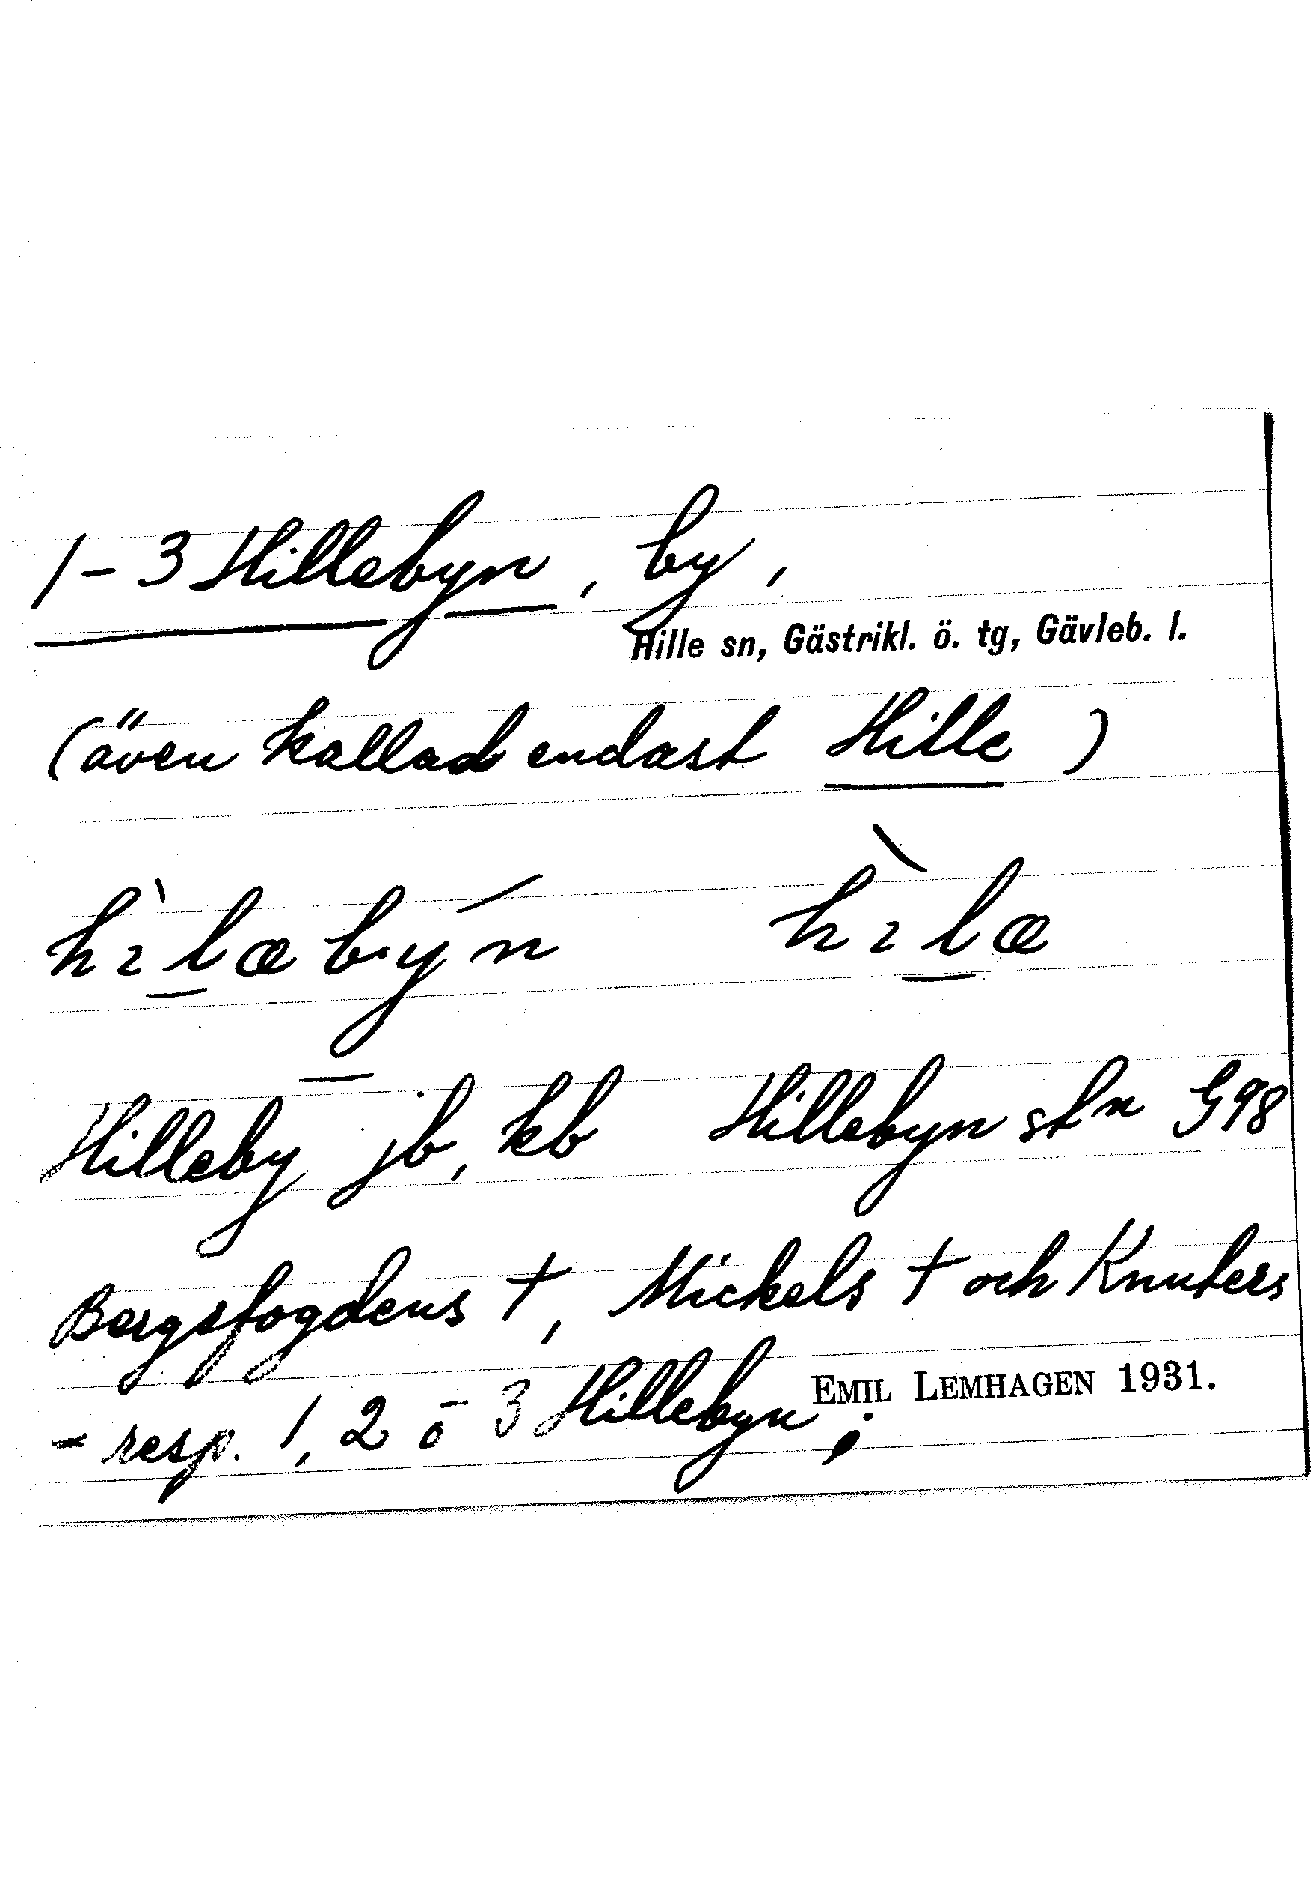 1-3 Hillebyn, by,
Hille sn, Gästrikl. ö. tg, Gävleb. l.
(även kallad endast Hille)
hìlæbýn hìlæ
Hilleby jb, kb Hillebyn skn G98
Bergsfogdens †, Mickels † och Knuters
- resp. 1, 2 o 3 Hillebyn;
EMIL LEMHAGEN 1931.